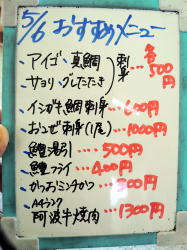 5/6 おすすめメニュー
・アイゴ・真鯛 刺身 各500円
・サヨリ・グレたたき
・イシガキ鯛刺身…600円
・おこぜ刺身(1尾)…1000円
・鱧湯引…500円
・鱧フライ…400円
・かつおミンチカツ…300円
・A4ランク
阿波牛焼肉…1300円